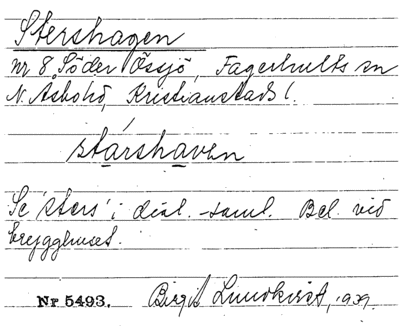 Stershagen
nr 8 Söder Össjö, Fagerhults sn
N. Åsbo hd, Kristianstads l.
stárshaven
Se 'sters' i dial. saml. Bel. vid
brygghuset.
Nr 5493. Birgit Lundkvist, 1939.